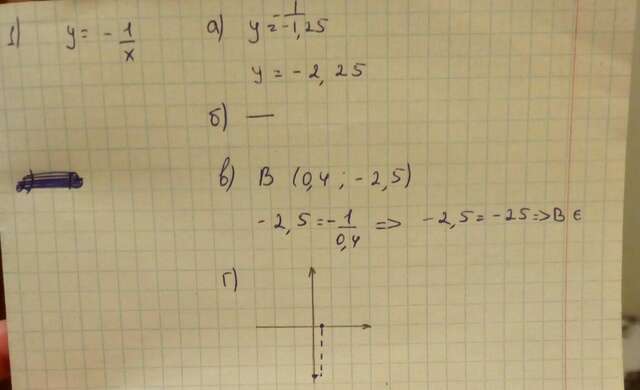 1) y = - 1/x
а) y = - 1/-1,25
y = -2,25
б) —
в) В (0,4 ; -2,5)
-2,5 = - 1/0,4 => -2,5 = -25 => В ∈
г)